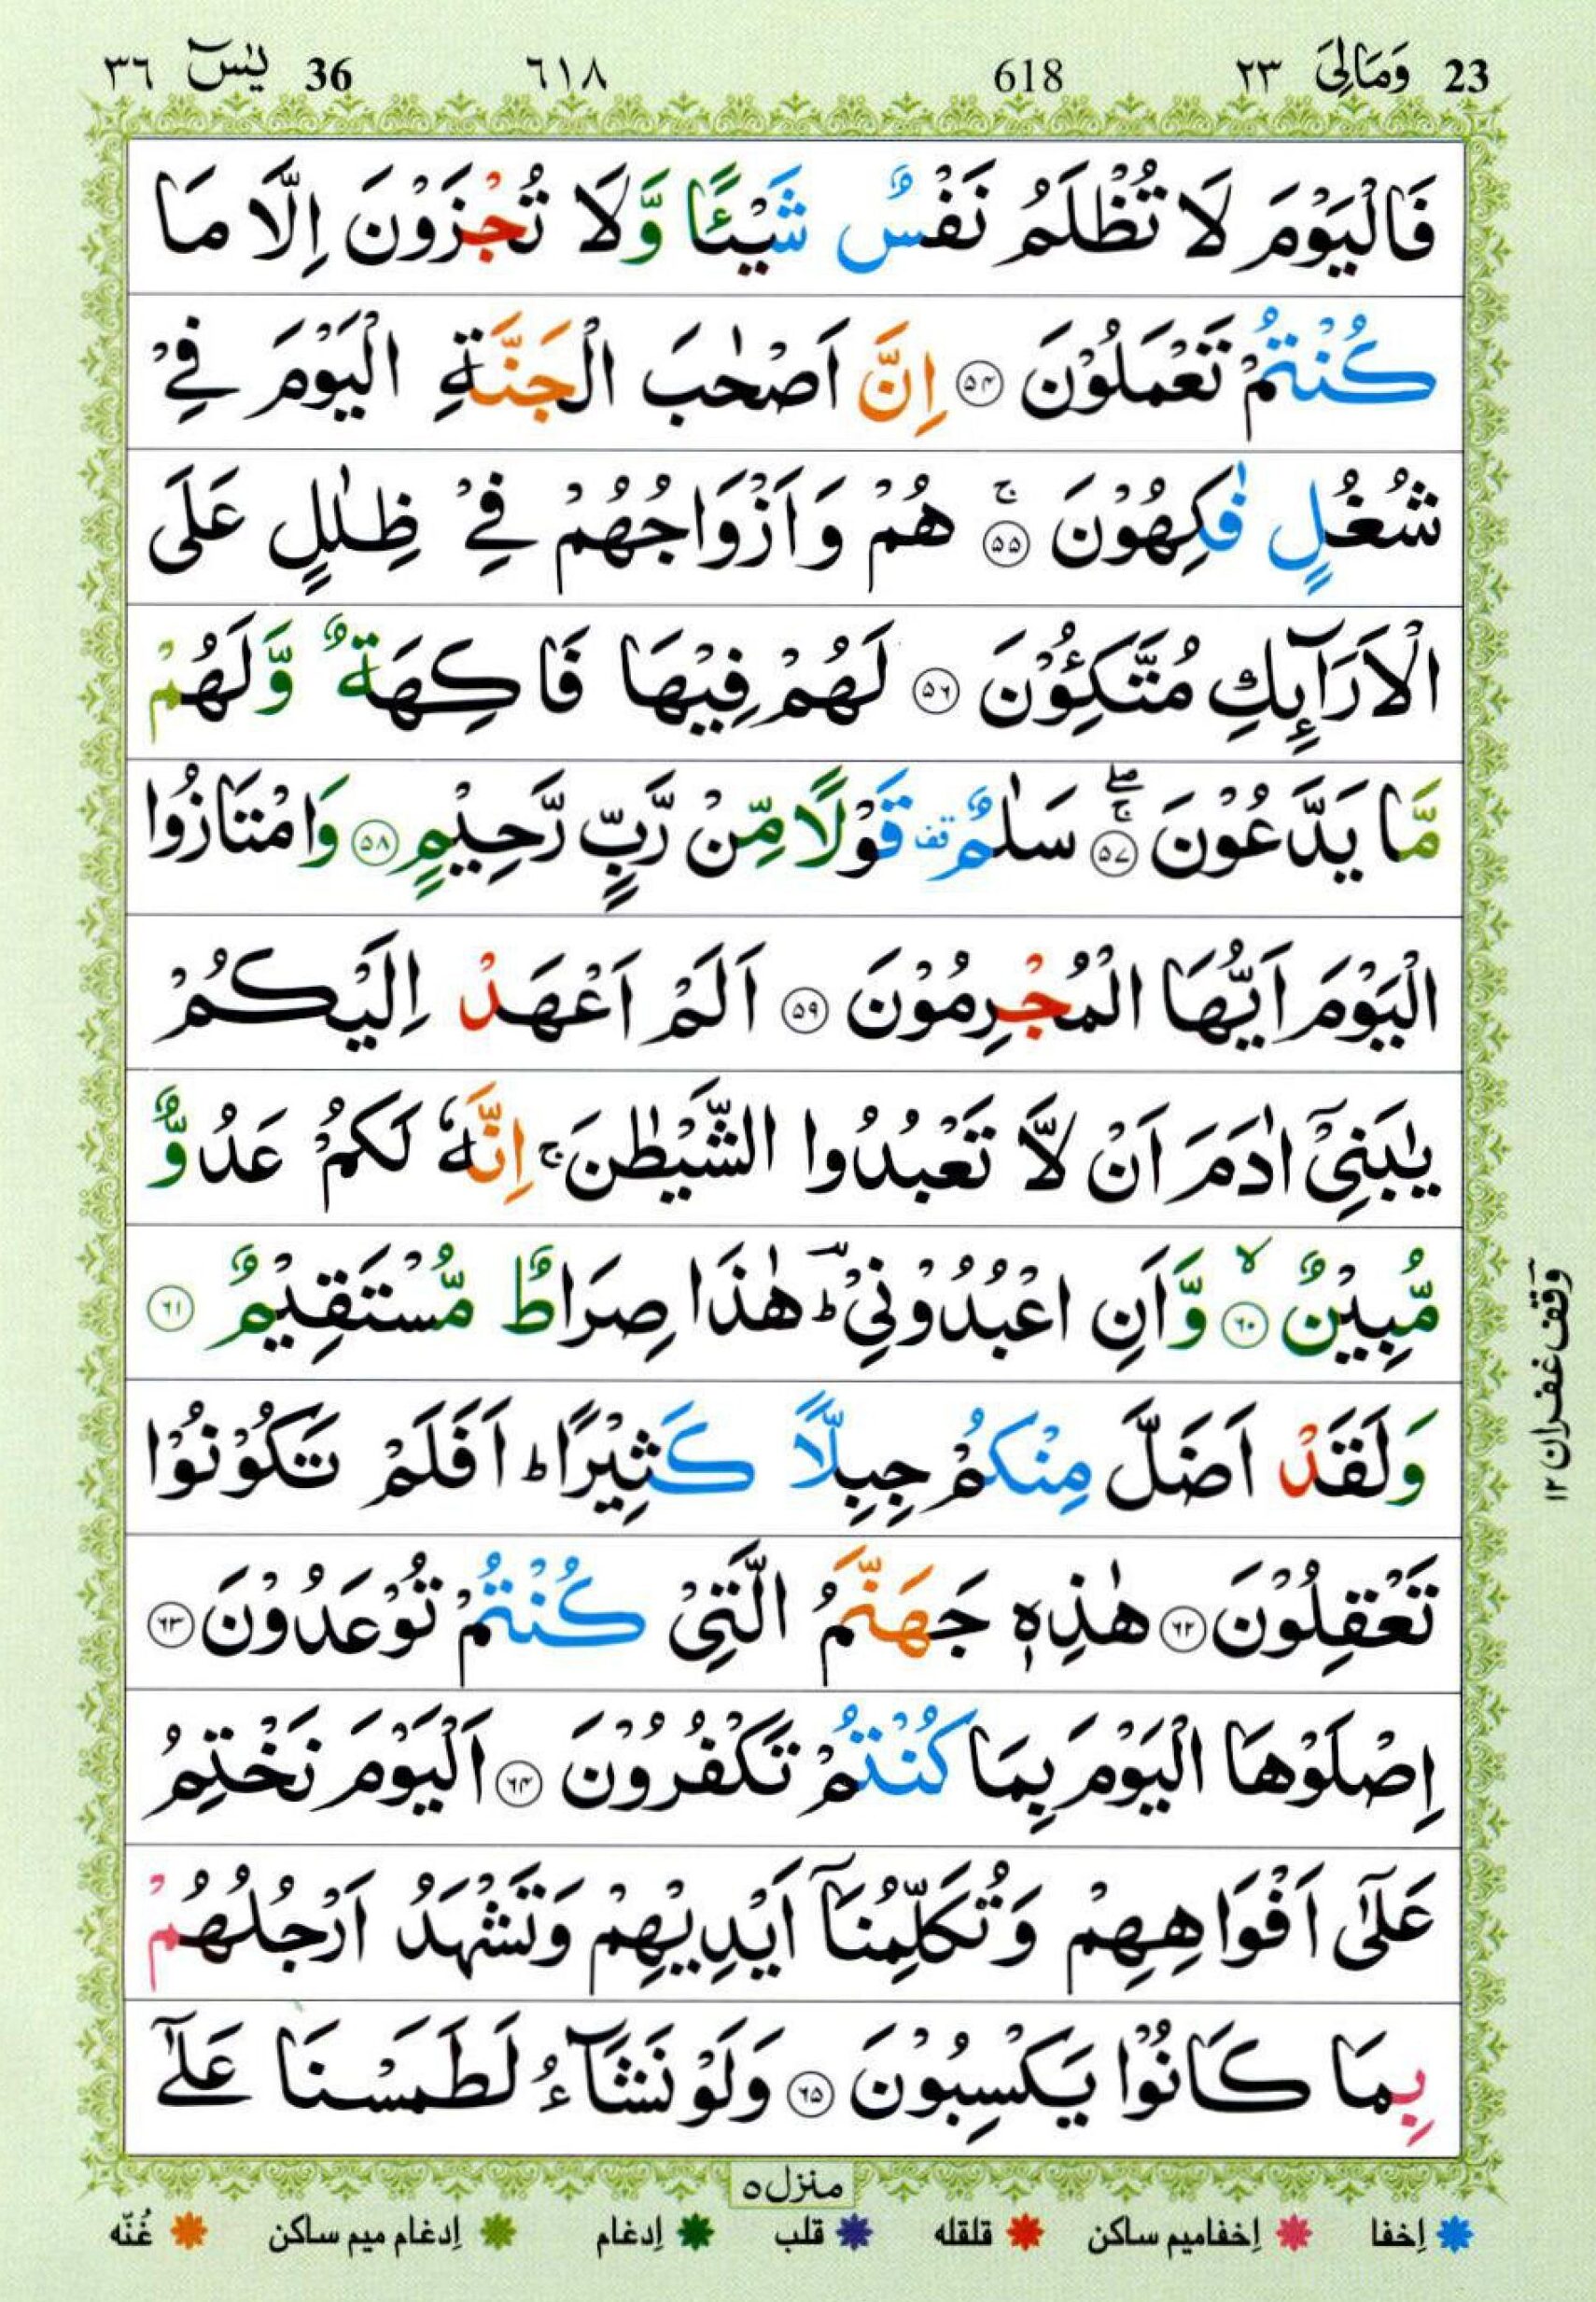 23 وَمَالِیَ ٢٣ 618 ٦١٨ 36 یٰسٓ ٣٦
فَالْیَوْمَ لَا تُظْلَمُ نَفْسٌ شَیْـًٔا وَّلَا تُجْزَوْنَ اِلَّا مَا
كُنْتُمْ تَعْمَلُوْنَ ۝۵۴ اِنَّ اَصْحٰبَ الْجَنَّةِ الْیَوْمَ فِیْ
شُغُلٍ فٰكِهُوْنَ ۝۵۵ ۚ هُمْ وَاَزْوَاجُهُمْ فِیْ ظِلٰلٍ عَلَی
الْاَرَآىِٕكِ مُتَّكِـُٔوْنَ ۝۵۶ لَهُمْ فِیْهَا فَاكِهَةٌ وَّلَهُمْ
مَّا یَدَّعُوْنَ ۝۵۷ ۚۖ سَلٰمٌ قف قَوْلًا مِّنْ رَّبٍّ رَّحِیْمٍ ۝۵۸ وَامْتَازُوا
الْیَوْمَ اَیُّهَا الْمُجْرِمُوْنَ ۝۵۹ اَلَمْ اَعْهَدْ اِلَیْكُمْ
یٰبَنِیْۤ اٰدَمَ اَنْ لَّا تَعْبُدُوا الشَّیْطٰنَ ۚ اِنَّهٗ لَكُمْ عَدُوٌّ
مُّبِیْنٌ ۝۶۰ ۙ وَّاَنِ اعْبُدُوْنِیْ ؕؔ هٰذَا صِرَاطٌ مُّسْتَقِیْمٌ ۝۶۱
وَلَقَدْ اَضَلَّ مِنْكُمْ جِبِلًّا كَثِیْرًا ؕ اَفَلَمْ تَكُوْنُوْا
تَعْقِلُوْنَ ۝۶۲ هٰذِهٖ جَهَنَّمُ الَّتِیْ كُنْتُمْ تُوْعَدُوْنَ ۝۶۳
اِصْلَوْهَا الْیَوْمَ بِمَا كُنْتُمْ تَكْفُرُوْنَ ۝۶۴ اَلْیَوْمَ نَخْتِمُ
عَلٰۤی اَفْوَاهِهِمْ وَتُكَلِّمُنَاۤ اَیْدِیْهِمْ وَتَشْهَدُ اَرْجُلُهُمْ
بِمَا كَانُوْا یَكْسِبُوْنَ ۝۶۵ وَلَوْ نَشَآءُ لَطَمَسْنَا عَلٰۤی
وقف غفران ١٢
منزل ٥
إخفا إخفامیم ساكن قلقله قلب إدغام إدغام میم ساكن غُنّه